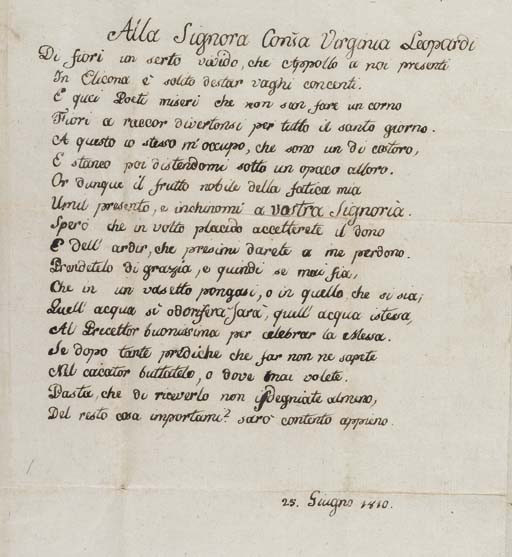 Alla Signora Cont.sa Virginia Leopardi
Di fiori un serto vivido, che Appollo a noi presenti
In Elicona è solito destar vaghi concenti.
E quei Poeti miseri che non san fare un corno
Fiori a raccor divertonsi per tutto il santo giorno.
A questo io stesso m'occupo, che sono un di costoro,
E stanco poi distendomi sotto un opaco alloro.
Or dunque il frutto nobile della fatica mia
Umil presento, e inchinomi a vostra Signoria.
Spero che in volto placido accetterete il dono
E dell' ardir, che presimi darete a me perdono.
Prendetelo di grazia, e quindi se mai fia,
Che in un vasetto pongasi, o in quello, che si sia;
Quell' acqua sì odorifera sarà, quell' acqua istessa,
Al Precettor buonissima per celebrar la Messa.
Se dopo tante prediche che far non ne sapete
Nel cacator buttatelo, o dove mai volete.
Basta, che di riceverlo non isdegniate almeno,
Del resto cosa importami? sarò contento appieno.
25. Giugno 1810.